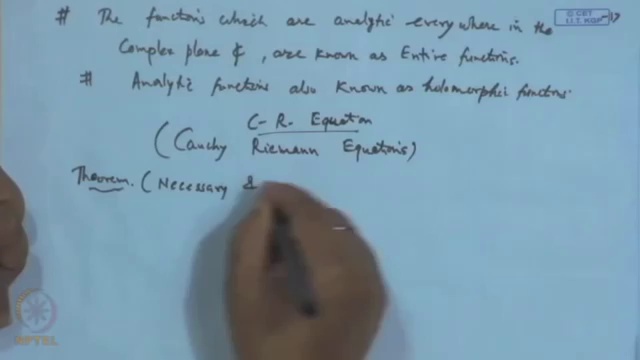 # The functions which are analytic everywhere in the
Complex plane ₵, are known as Entire functions.
# Analytic functions also known as holomorphic functions.
C-R. Equation
(Cauchy Riemann Equations)
Theorem. (Necessary &
© CET
I.I.T. KGP
NPTEL